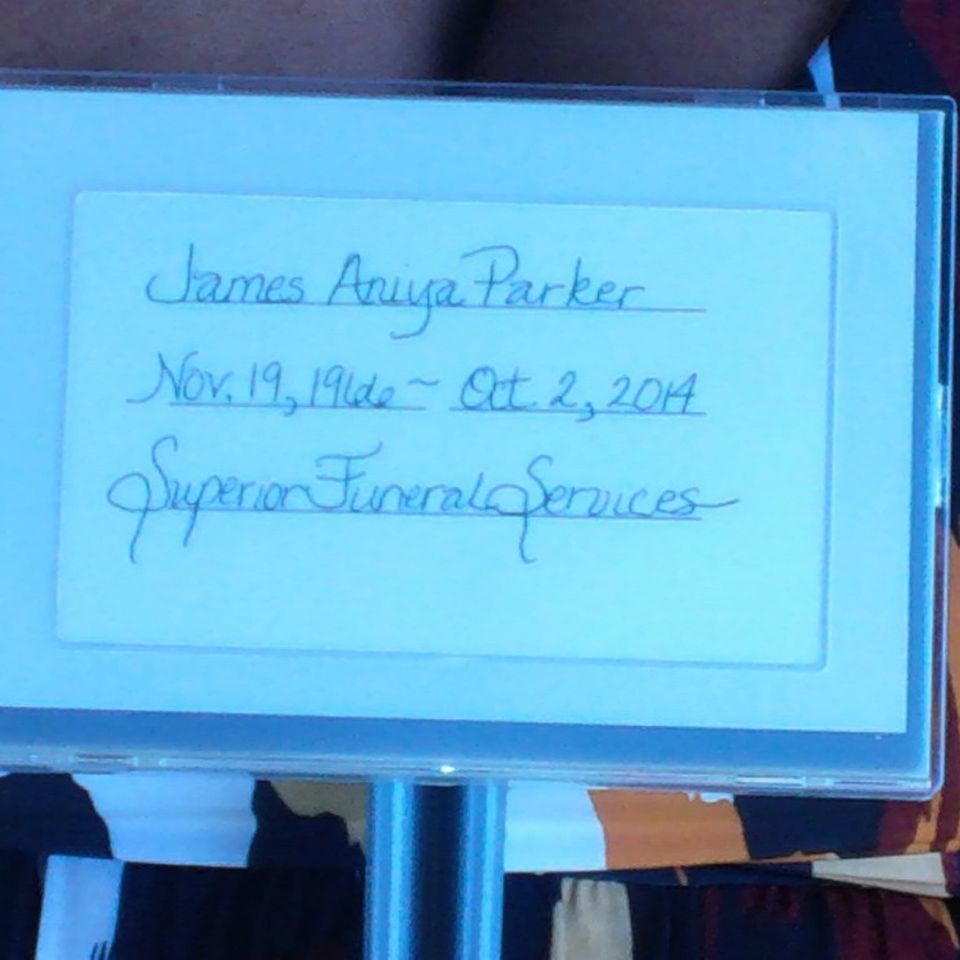 James Aniya Parker
Nov. 19, 1966 ~ Oct. 2, 2014
Superior Funeral Services